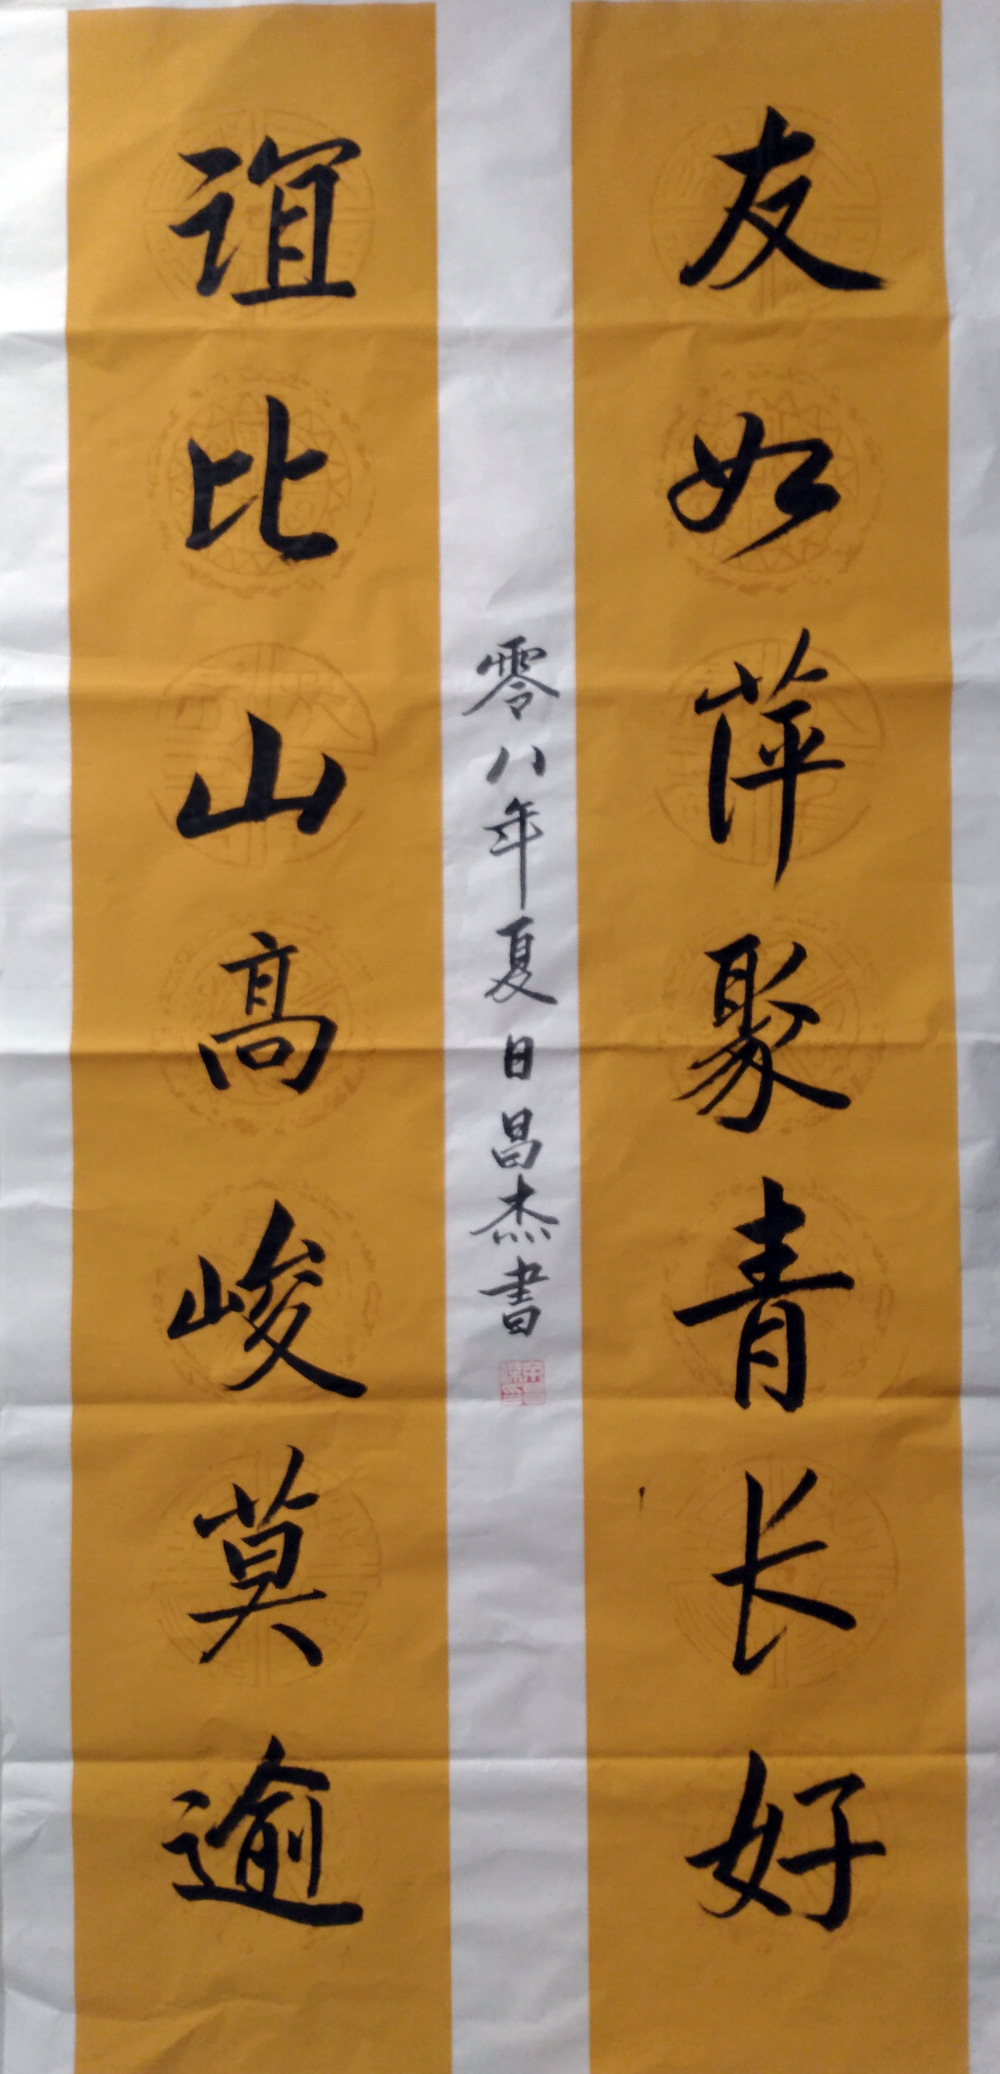 友如萍聚青长好
谊比山高峻莫逾
零八年夏日昌杰書